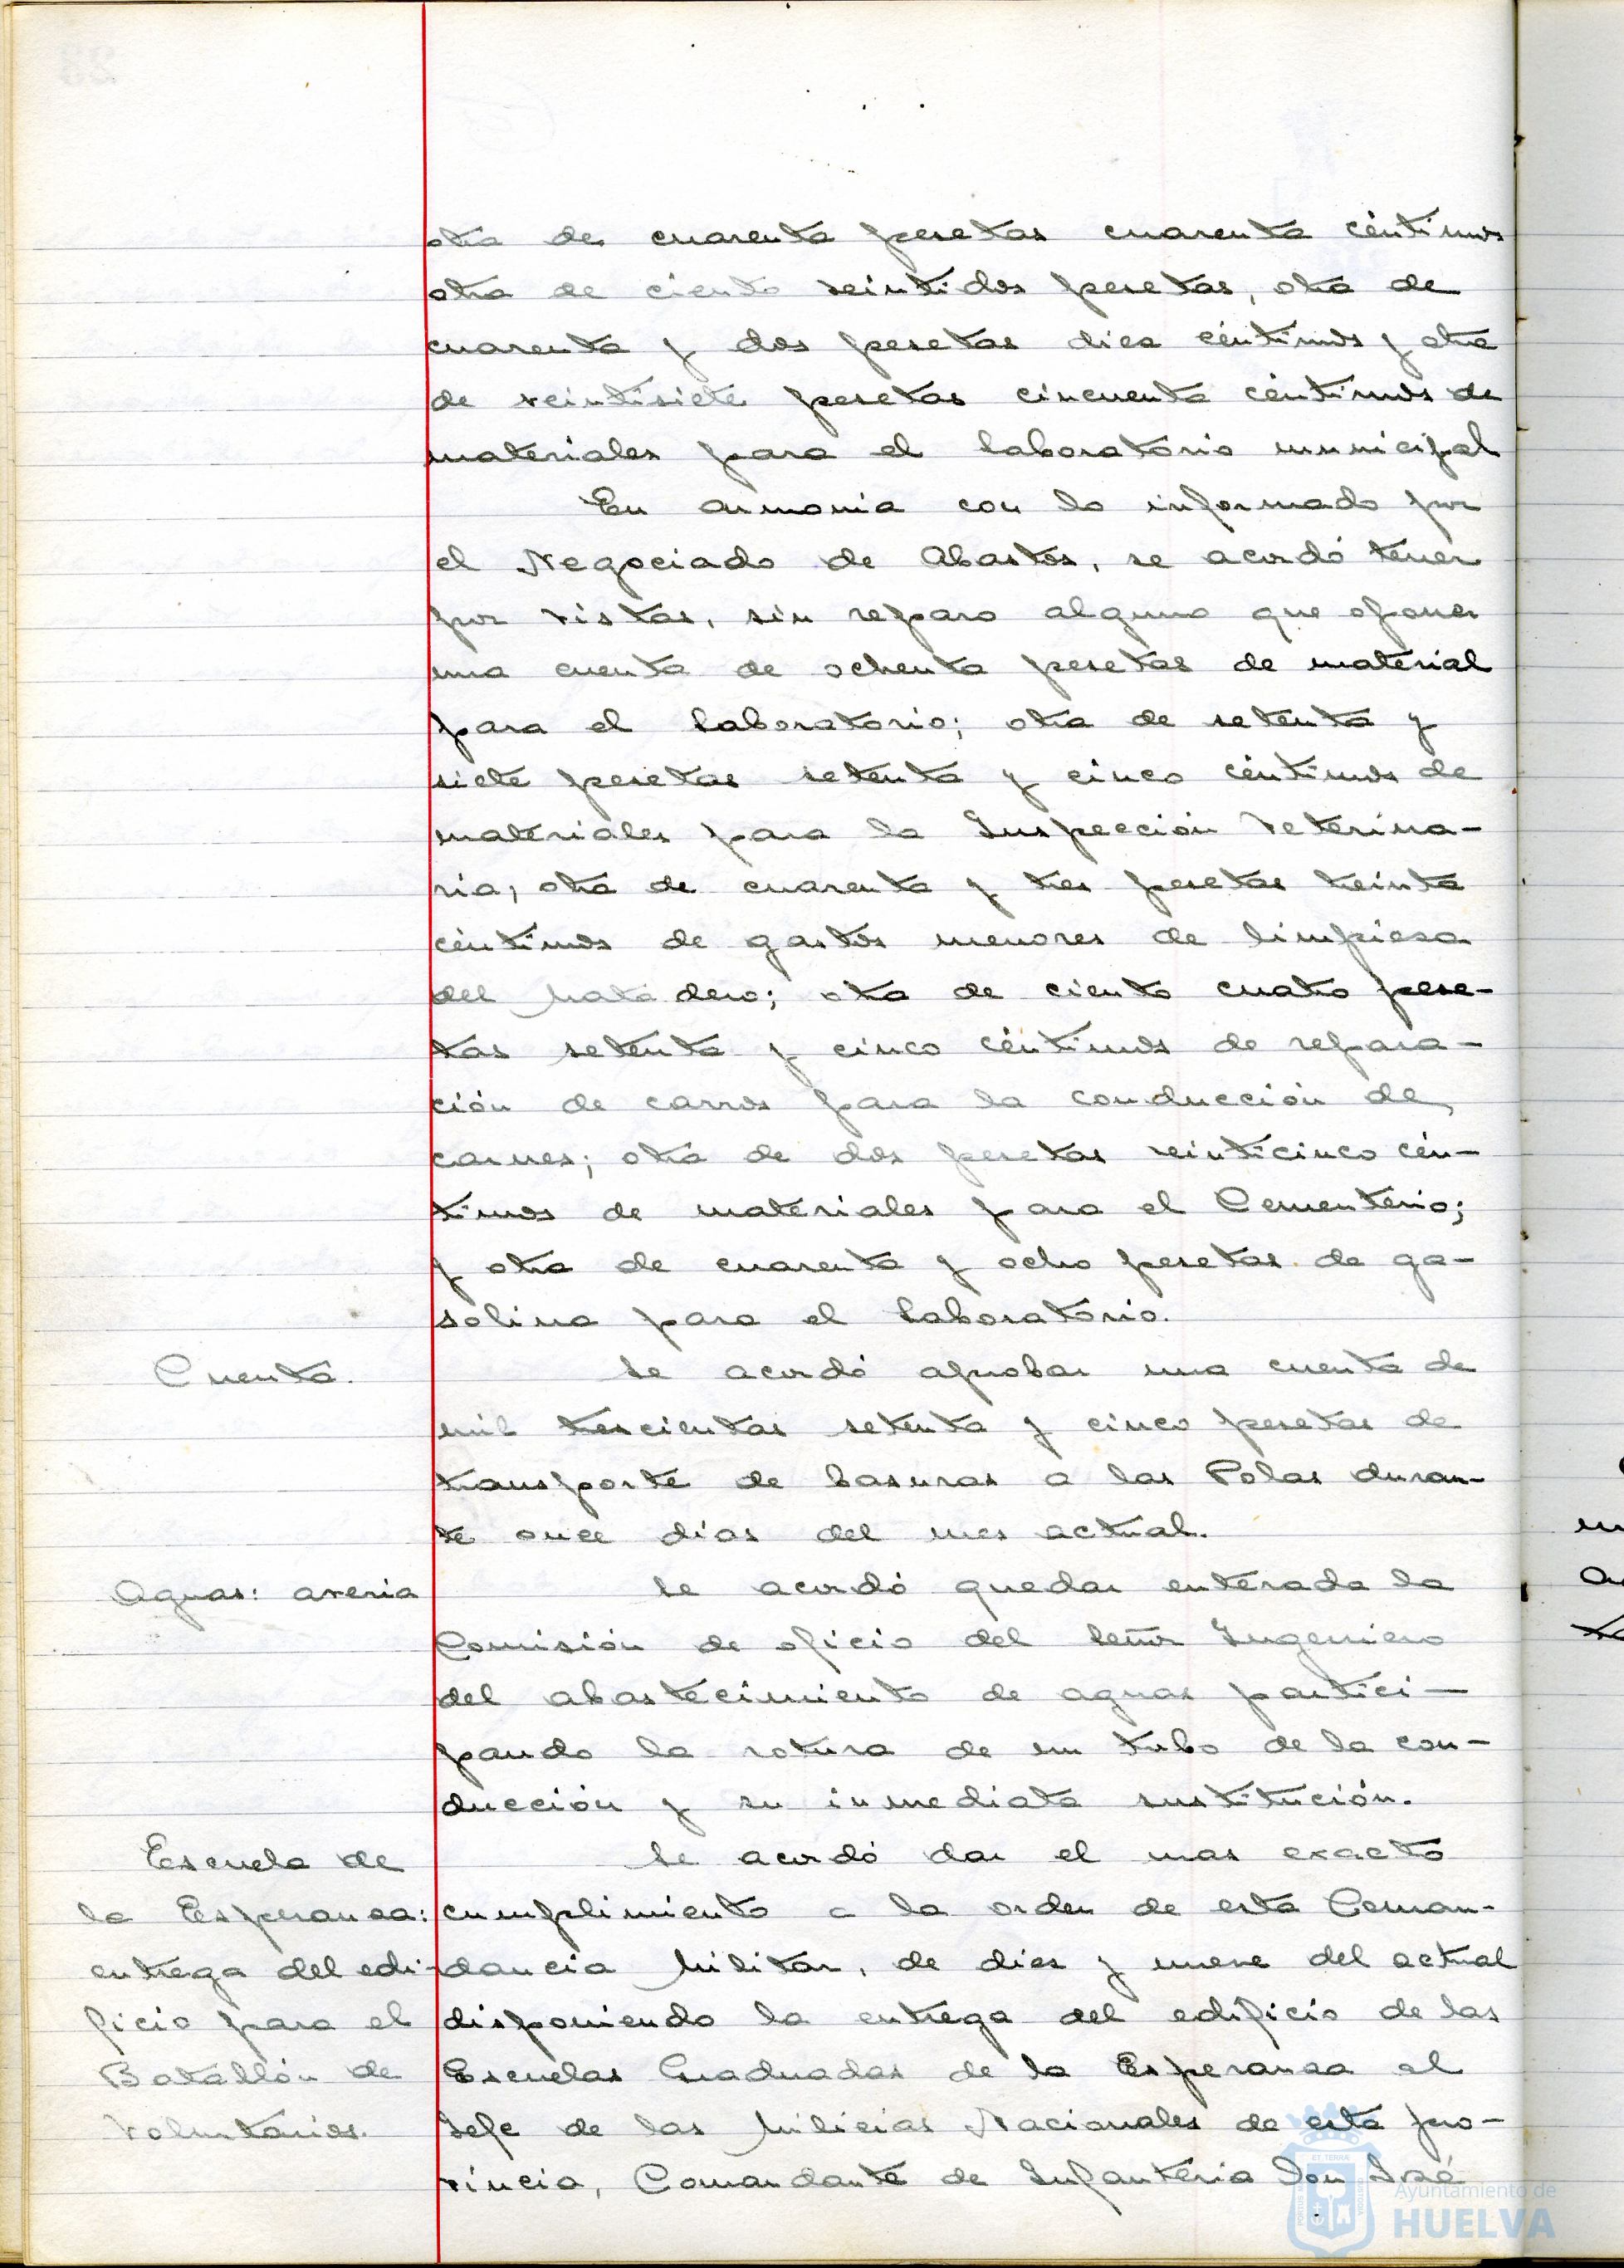 otra de cuarenta pesetas cuarenta céntimos
otra de ciento veintidos pesetas, otra de
cuarenta y dos pesetas diez céntimos y otra
de veintisiete pesetas cincuenta céntimos de
materiales para el laboratorio municipal
En armonia con lo informado por
el Negociado de Abastos, se acordó tener
por vistas, sin reparo alguno que oponer
una cuenta de ochenta pesetas de material
para el laboratorio; otra de setenta y
siete pesetas setenta y cinco céntimos de
materiales para la Inspección Veterina-
ria, otra de cuarenta y tres pesetas treinta
céntimos de gastos menores de limpieza
del Matadero; otra de ciento cuatro pese-
tas setenta y cinco céntimos de repara-
ción de carros para la conducción de
carnes; otra de dos pesetas veinticinco cén-
timos de materiales para el Cementerio;
y otra de cuarenta y ocho pesetas de ga-
solina para el laboratorio.
Cuenta.
Se acordó aprobar una cuenta de
mil trescientas setenta y cinco pesetas de
transporte de basuras a las Polas duran-
te once días del mes actual.
Aguas: averia
Se acordó quedar enterada la
Comisión de oficio del Señor Ingeniero
del abastecimiento de aguas partici-
pando la rotura de un tubo de la con-
ducción y su inmediata sustitución.
Escuela de
la Esperanza:
entrega del edi-
ficio para el
Batallón de
Voluntarios.
Se acordó dar el mas exacto
cumplimiento a la orden de esta Coman-
dancia Militar, de diez y nueve del actual
disponiendo la entrega del edificio de las
Escuelas Graduadas de la Esperanza al
Jefe de las Milicias Nacionales de esta pro-
vincia, Comandante de Infanteria Don José
Ayuntamiento de
HUELVA